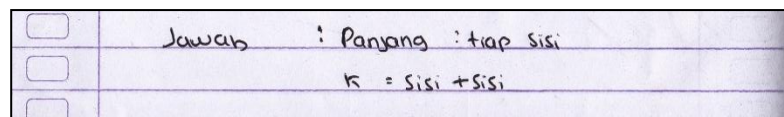 Jawab : Panjang : tiap sisi
K = sisi + sisi